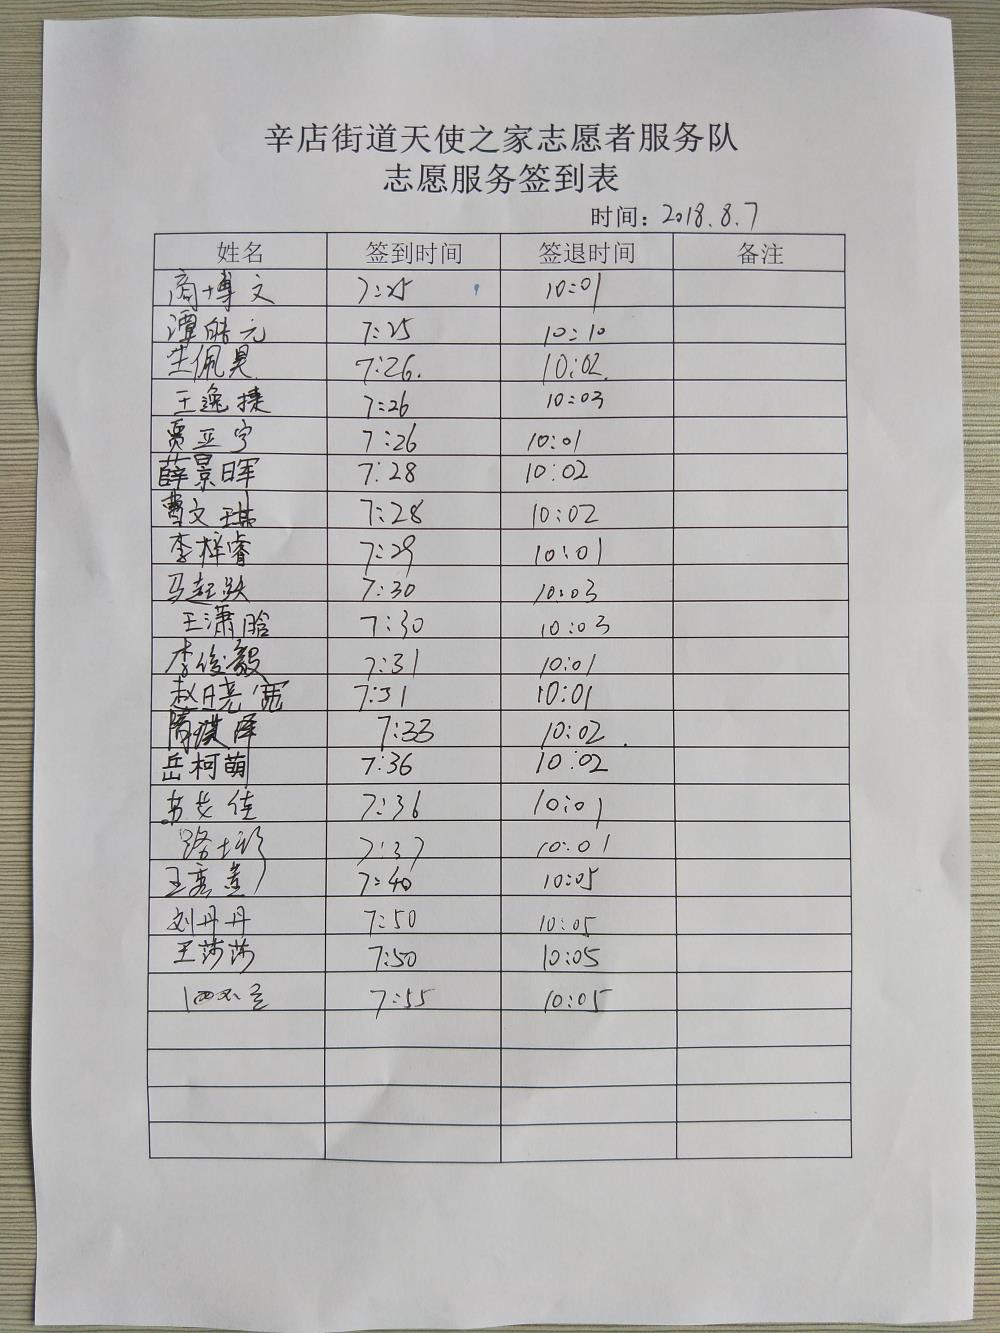 辛店街道天使之家志愿者服务队
志愿服务签到表
时间：2018.8.7
姓名 签到时间 签退时间 备注
商博文 7:25 10:01
谭皓元 7:25 10:10
生佩昊 7:26. 10:02.
王逸捷 7:26 10:03
贾亚宁 7:26 10:01
薛景晖 7:28 10:02
曹文琪 7:28 10:02
李梓睿 7:29 10:01
马起跃 7:30 10:03
王潇晗 7:30 10:03
李俊毅 7:31 10:01
赵晓 7:31 10:01
隋琪泽 7:33 10:02.
岳柯萌 7:36 10:02
苏艾佳 7:36 10:01
路 7:37 10:01
王 7:40 10:05
刘丹丹 7:50 10:05
王莎莎 7:50 10:05
7:55 10:05